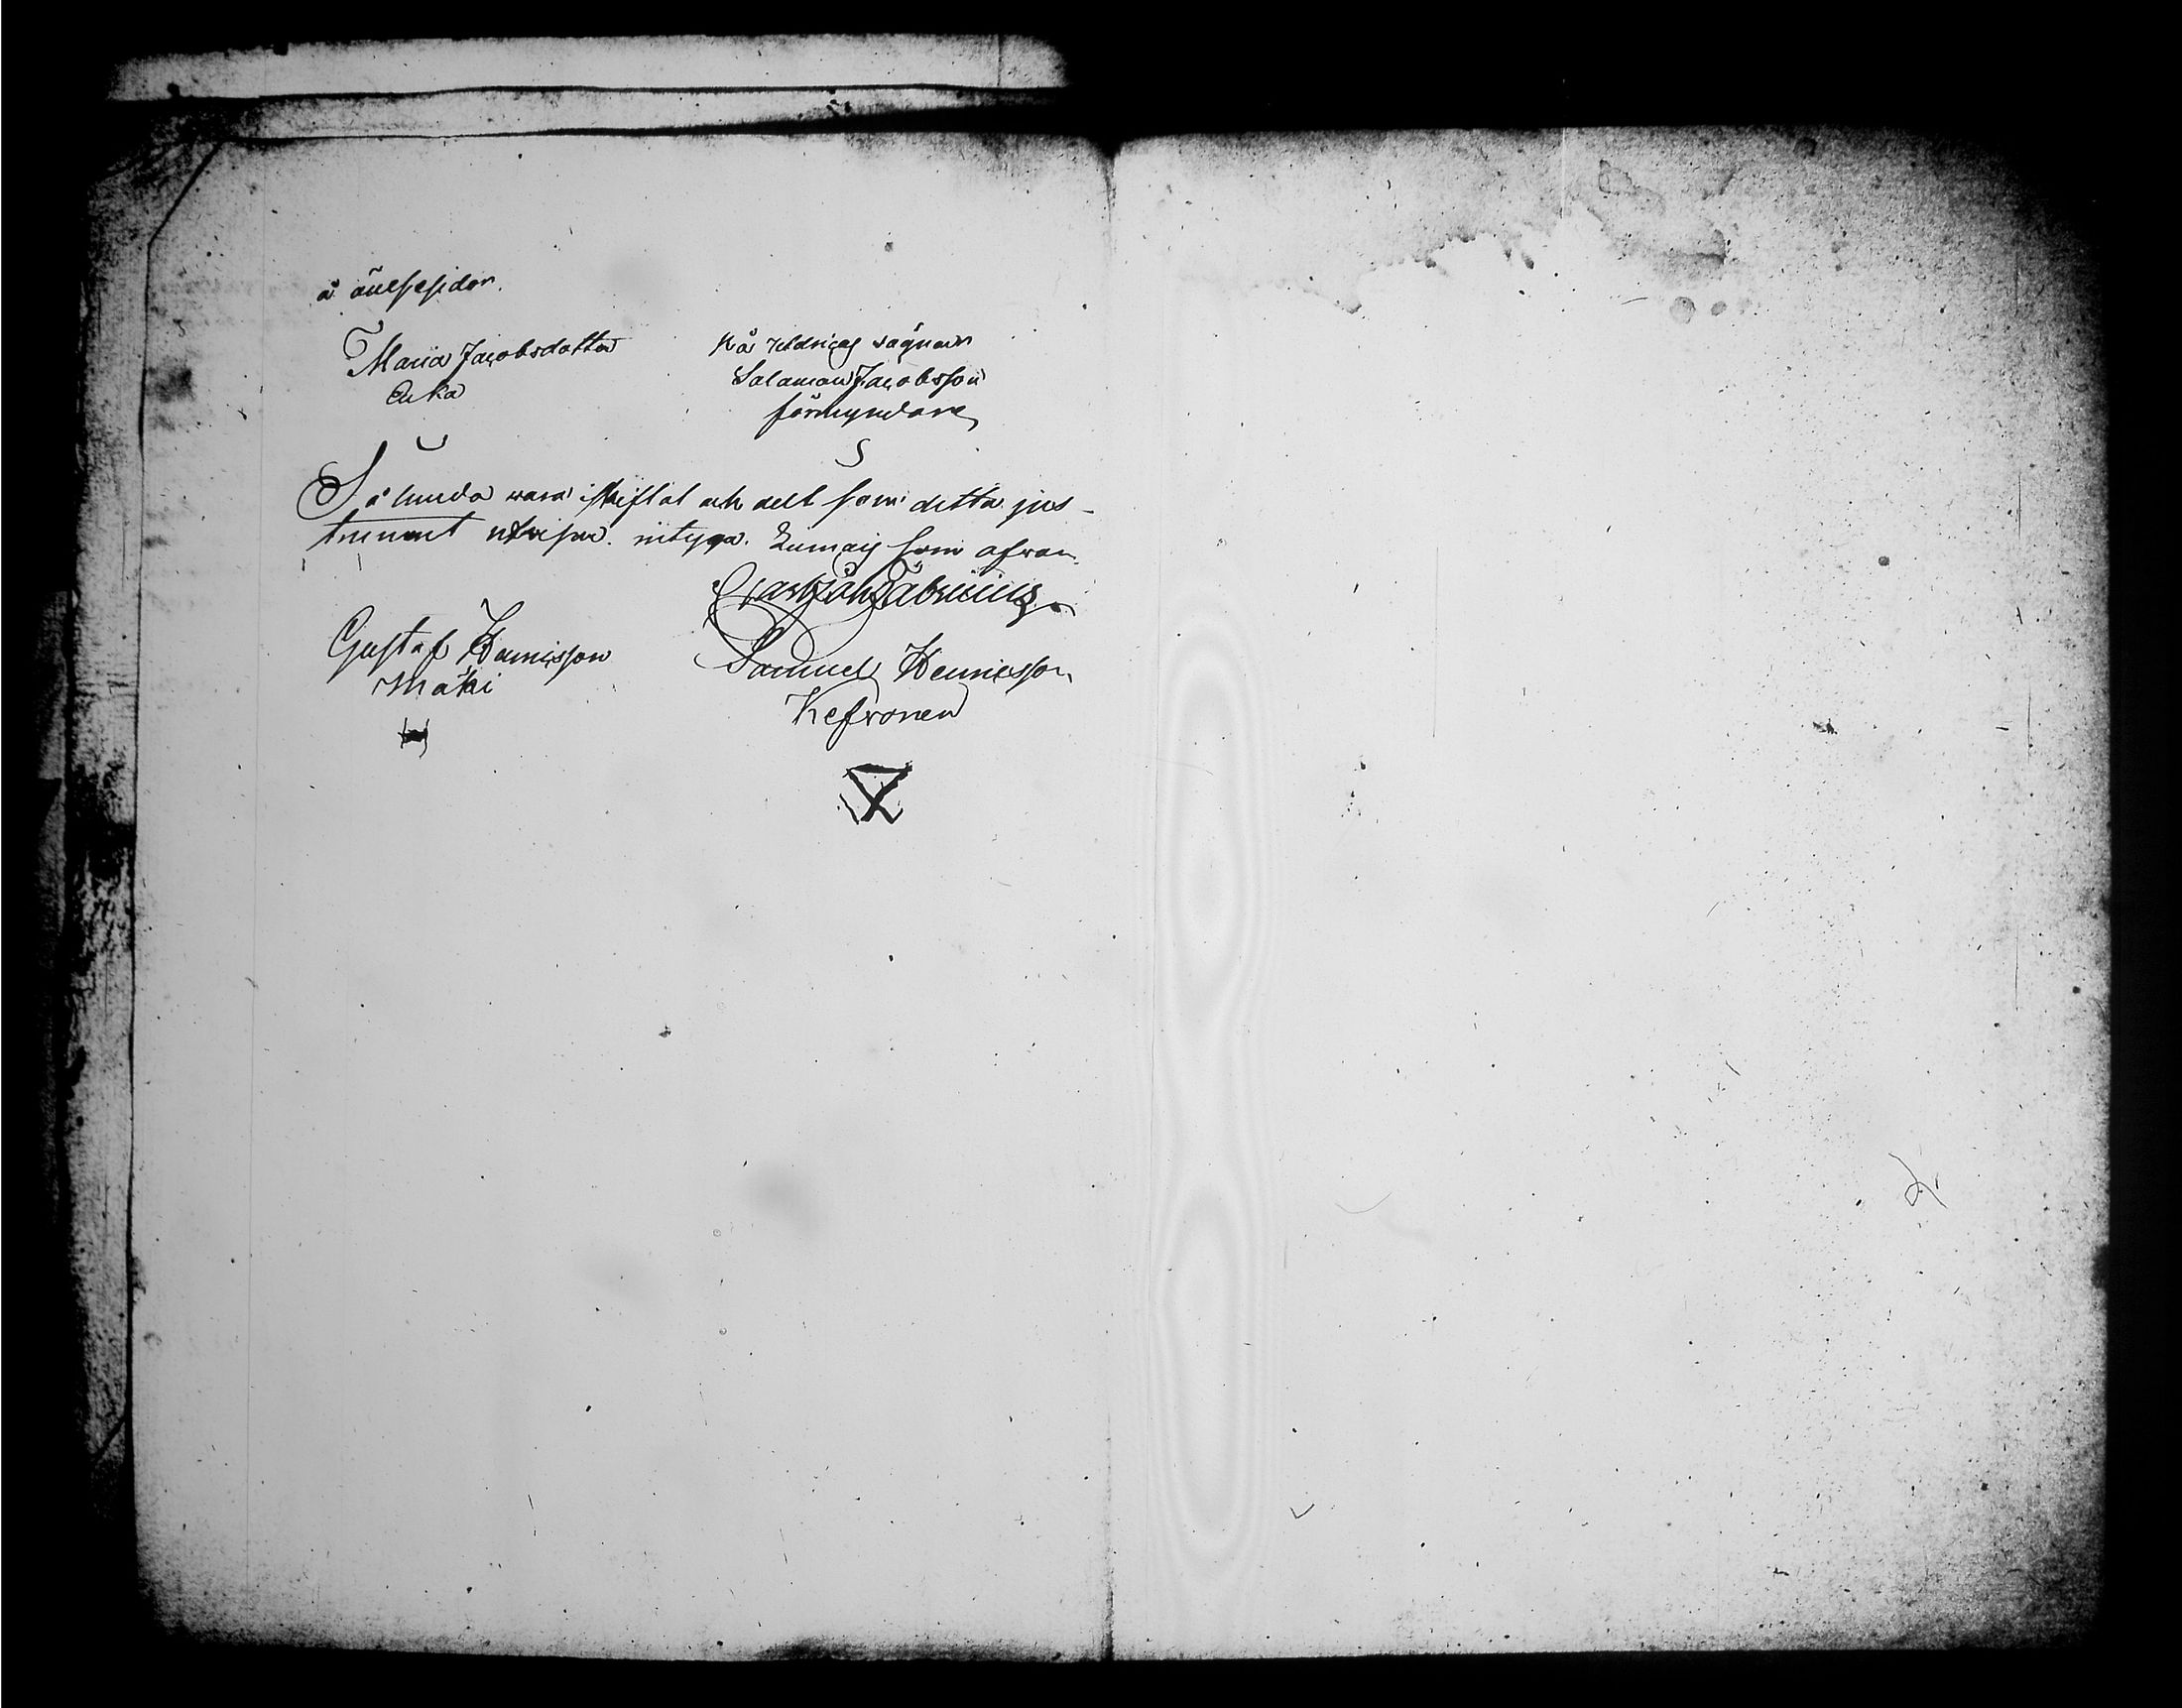 å ömsesidor.
Maria Jacobsdotter
Enka
På Hedvigs vägnar
Salamon Jacobsson
förmyndare
Sålunda vara skiftat och delt som detta ins-
trument utvisar. intyga. Kumoij som ofvan.
Gustaf Hennisson
Mäki
Samuel Hennesson
Kesvonen